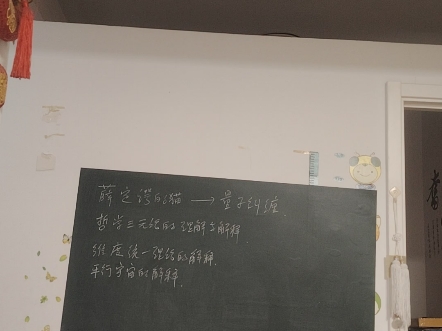 薛定谔的猫 → 量子纠缠.
哲学三元论的理解与解释.
维度统一理论的解释.
平行宇宙的解释.